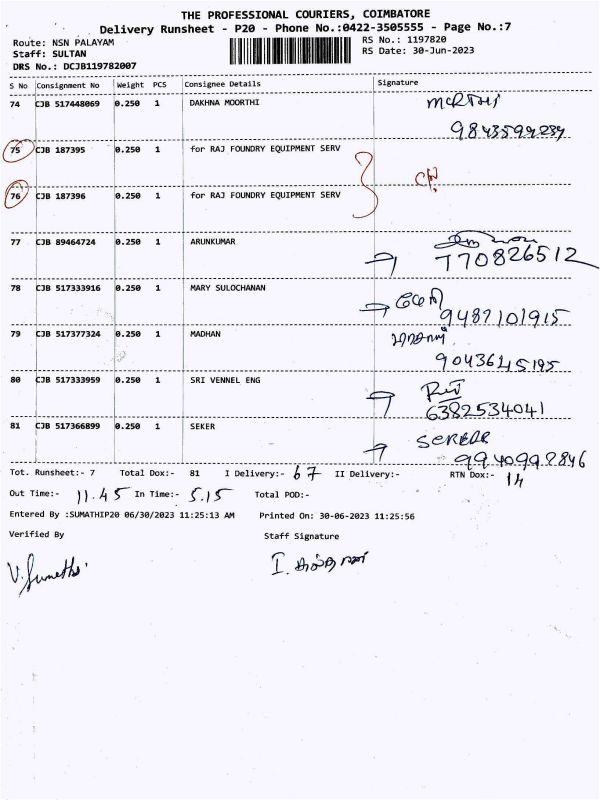 THE PROFESSIONAL COURIERS, COIMBATORE
Delivery Runsheet - P20 - Phone No.:0422-3505555 - Page No.:7
Route: NSN PALAYAM RS No.: 1197820
Staff: SULTAN RS Date: 30-Jun-2023
DRS No.: DCJB119782007
S No Consignment No Weight PCS Consignee Details Signature
74 CJB 517448069 0.250 1 DAKHNA MOORTHI
75 CJB 187395 0.250 1 for RAJ FOUNDRY EQUIPMENT SERV
76 CJB 187396 0.250 1 for RAJ FOUNDRY EQUIPMENT SERV
77 CJB 89464724 0.250 1 ARUNKUMAR
770826512
78 CJB 517333916 0.250 1 MARY SULOCHANAN
9487101915
79 CJB 517377324 0.250 1 MADHAN
9043645195
80 CJB 517333959 0.250 1 SRI VENNEL ENG
6382534041
81 CJB 517366899 0.250 1 SEKER
9940992846
Tot. Runsheet:- 7 Total Dox:- 81 I Delivery:- 67 II Delivery:- RTN Dox:- 14
Out Time:- 11.45 In Time:- 5.15 Total POD:-
Entered By :SUMATHIP20 06/30/2023 11:25:13 AM Printed On: 30-06-2023 11:25:56
Verified By Staff Signature
V. Sumathi